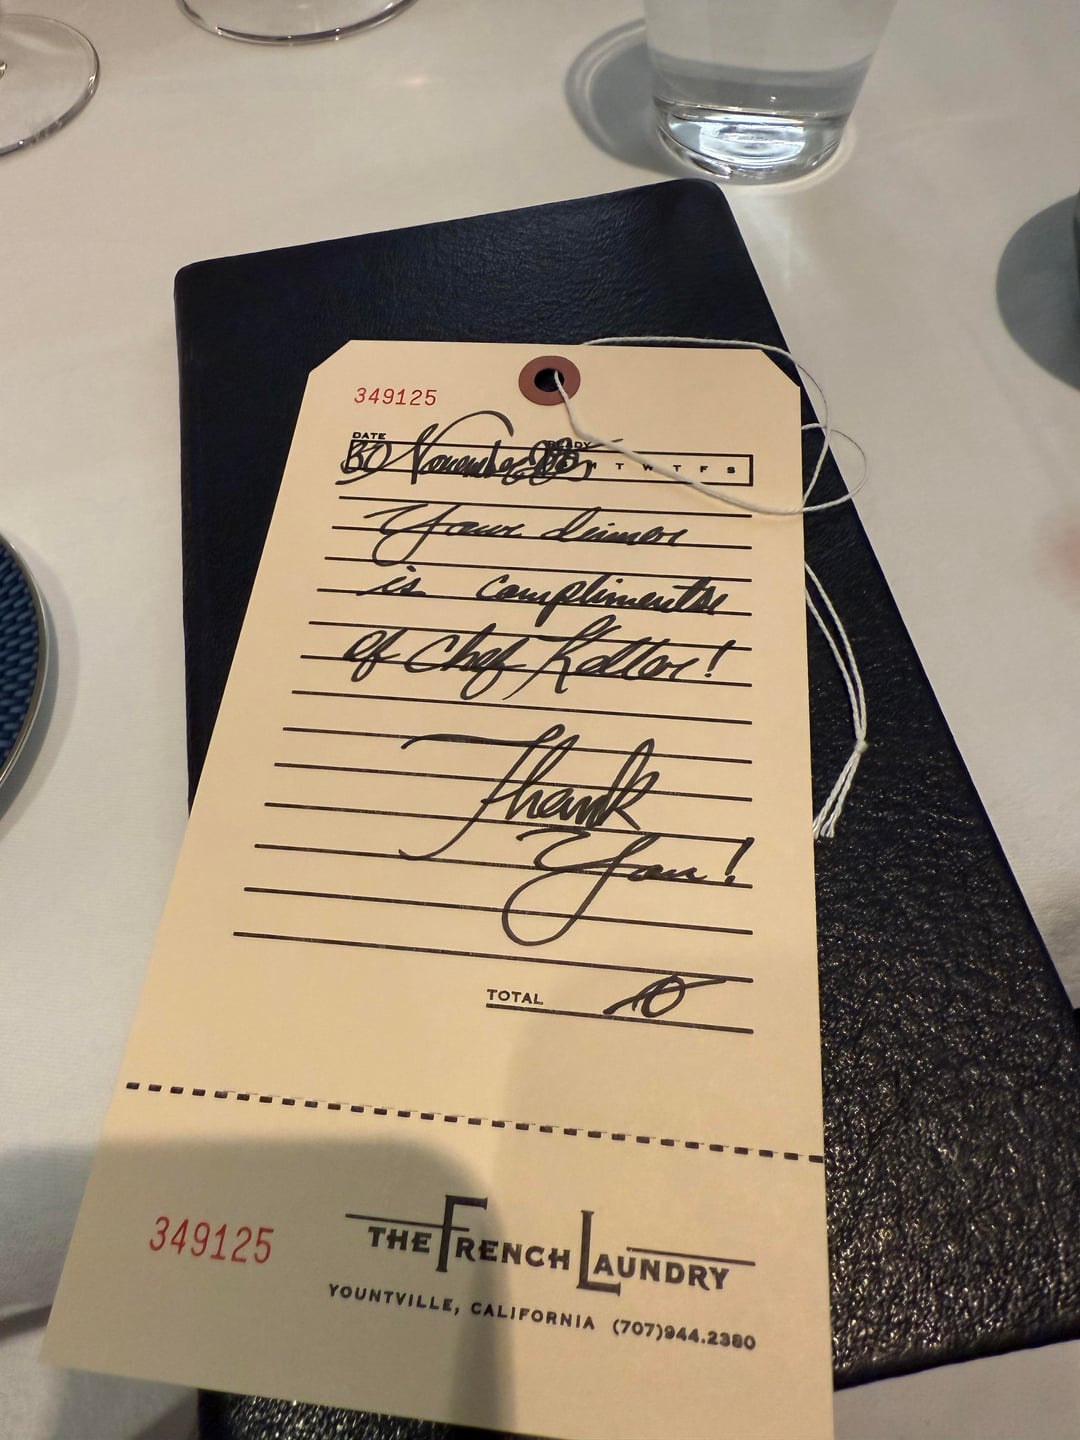 349125
DATE READY
30 November 2025 M T W T F S
Your dinner
is compliments
of Chef Keller!
Thank
You!
TOTAL 0
349125
THE FRENCH LAUNDRY
YOUNTVILLE, CALIFORNIA (707)944.2380